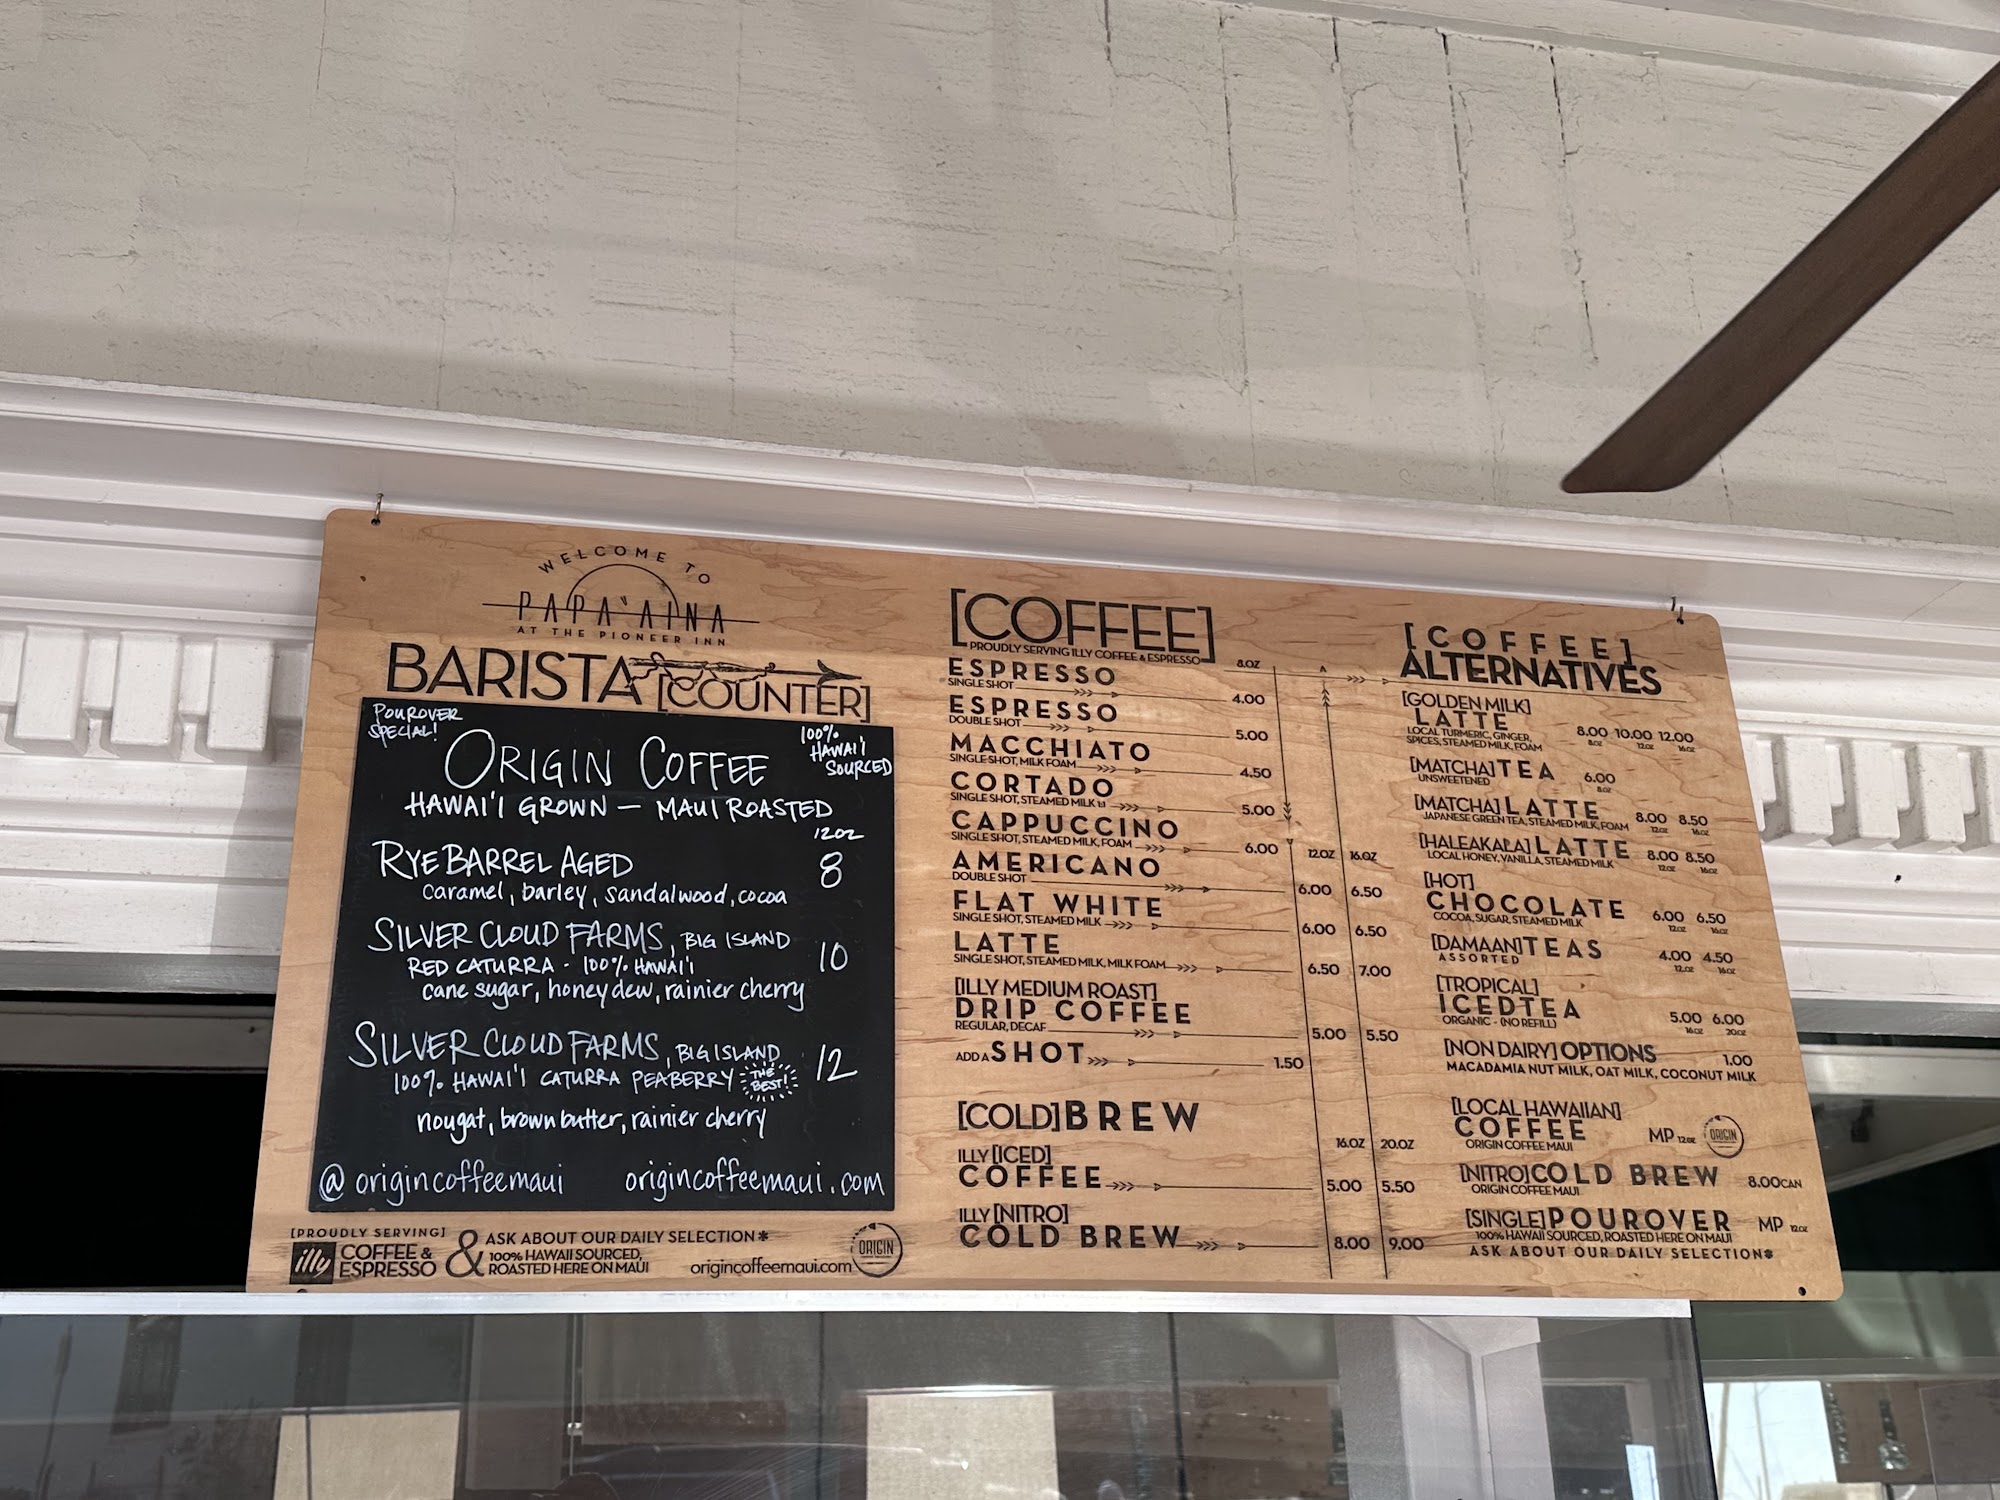 WELCOME TO
PAPA'AINA
AT THE PIONEER INN
BARISTA [COUNTER]
POUROVER
SPECIAL!
100%
HAWAI'I
SOURCED
ORIGIN COFFEE
HAWAI'I GROWN — MAUI ROASTED
12OZ
RYE BARREL AGED 8
caramel, barley, sandalwood, cocoa
SILVER CLOUD FARMS, BIG ISLAND 10
RED CATURRA - 100% HAWAI'I
cane sugar, honeydew, rainier cherry
SILVER CLOUD FARMS, BIG ISLAND 12
100% HAWAI'I CATURRA PEABERRY THE BEST!
nougat, brown butter, rainier cherry
@origincoffeemaui origincoffeemaui.com
[PROUDLY SERVING]
illy COFFEE & ESPRESSO
& ASK ABOUT OUR DAILY SELECTION*
100% HAWAII SOURCED,
ROASTED HERE ON MAUI origincoffeemaui.com ORIGIN
[COFFEE]
PROUDLY SERVING ILLY COFFEE & ESPRESSO 8.OZ
ESPRESSO
SINGLE SHOT 4.00
ESPRESSO
DOUBLE SHOT 5.00
MACCHIATO
SINGLE SHOT, MILK FOAM 4.50
CORTADO
SINGLE SHOT, STEAMED MILK 1:1 5.00
CAPPUCCINO
SINGLE SHOT, STEAMED MILK, FOAM 6.00
12.OZ 16.OZ
AMERICANO
DOUBLE SHOT 6.00 6.50
FLAT WHITE
SINGLE SHOT, STEAMED MILK 6.00 6.50
LATTE
SINGLE SHOT, STEAMED MILK, MILK FOAM 6.50 7.00
[ILLY MEDIUM ROAST]
DRIP COFFEE
REGULAR, DECAF 5.00 5.50
ADD A SHOT 1.50
[COLD] BREW
16.OZ 20.OZ
ILLY [ICED]
COFFEE 5.00 5.50
ILLY [NITRO]
COLD BREW 8.00 9.00
[COFFEE]
ALTERNATIVES
[GOLDEN MILK]
LATTE
LOCAL TURMERIC, GINGER,
SPICES, STEAMED MILK, FOAM
8.00 10.00 12.00
8.OZ 12.OZ 16.OZ
[MATCHA] TEA 6.00
UNSWEETENED 8.OZ
[MATCHA] LATTE 8.00 8.50
JAPANESE GREEN TEA, STEAMED MILK, FOAM 12.OZ 16.OZ
[HALEAKALA] LATTE 8.00 8.50
LOCAL HONEY, VANILLA, STEAMED MILK 12.OZ 16.OZ
[HOT]
CHOCOLATE 6.00 6.50
COCOA, SUGAR, STEAMED MILK 12.OZ 16.OZ
[DAMAAN] TEAS 4.00 4.50
ASSORTED 12.OZ 16.OZ
[TROPICAL]
ICED TEA 5.00 6.00
ORGANIC - (NO REFILL) 16.OZ 20.OZ
[NON DAIRY] OPTIONS 1.00
MACADAMIA NUT MILK, OAT MILK, COCONUT MILK
[LOCAL HAWAIIAN]
COFFEE MP 12.OZ ORIGIN
ORIGIN COFFEE MAUI
[NITRO] COLD BREW 8.00CAN
ORIGIN COFFEE MAUI
[SINGLE] POUROVER MP 12.OZ
100% HAWAII SOURCED, ROASTED HERE ON MAUI
ASK ABOUT OUR DAILY SELECTION*